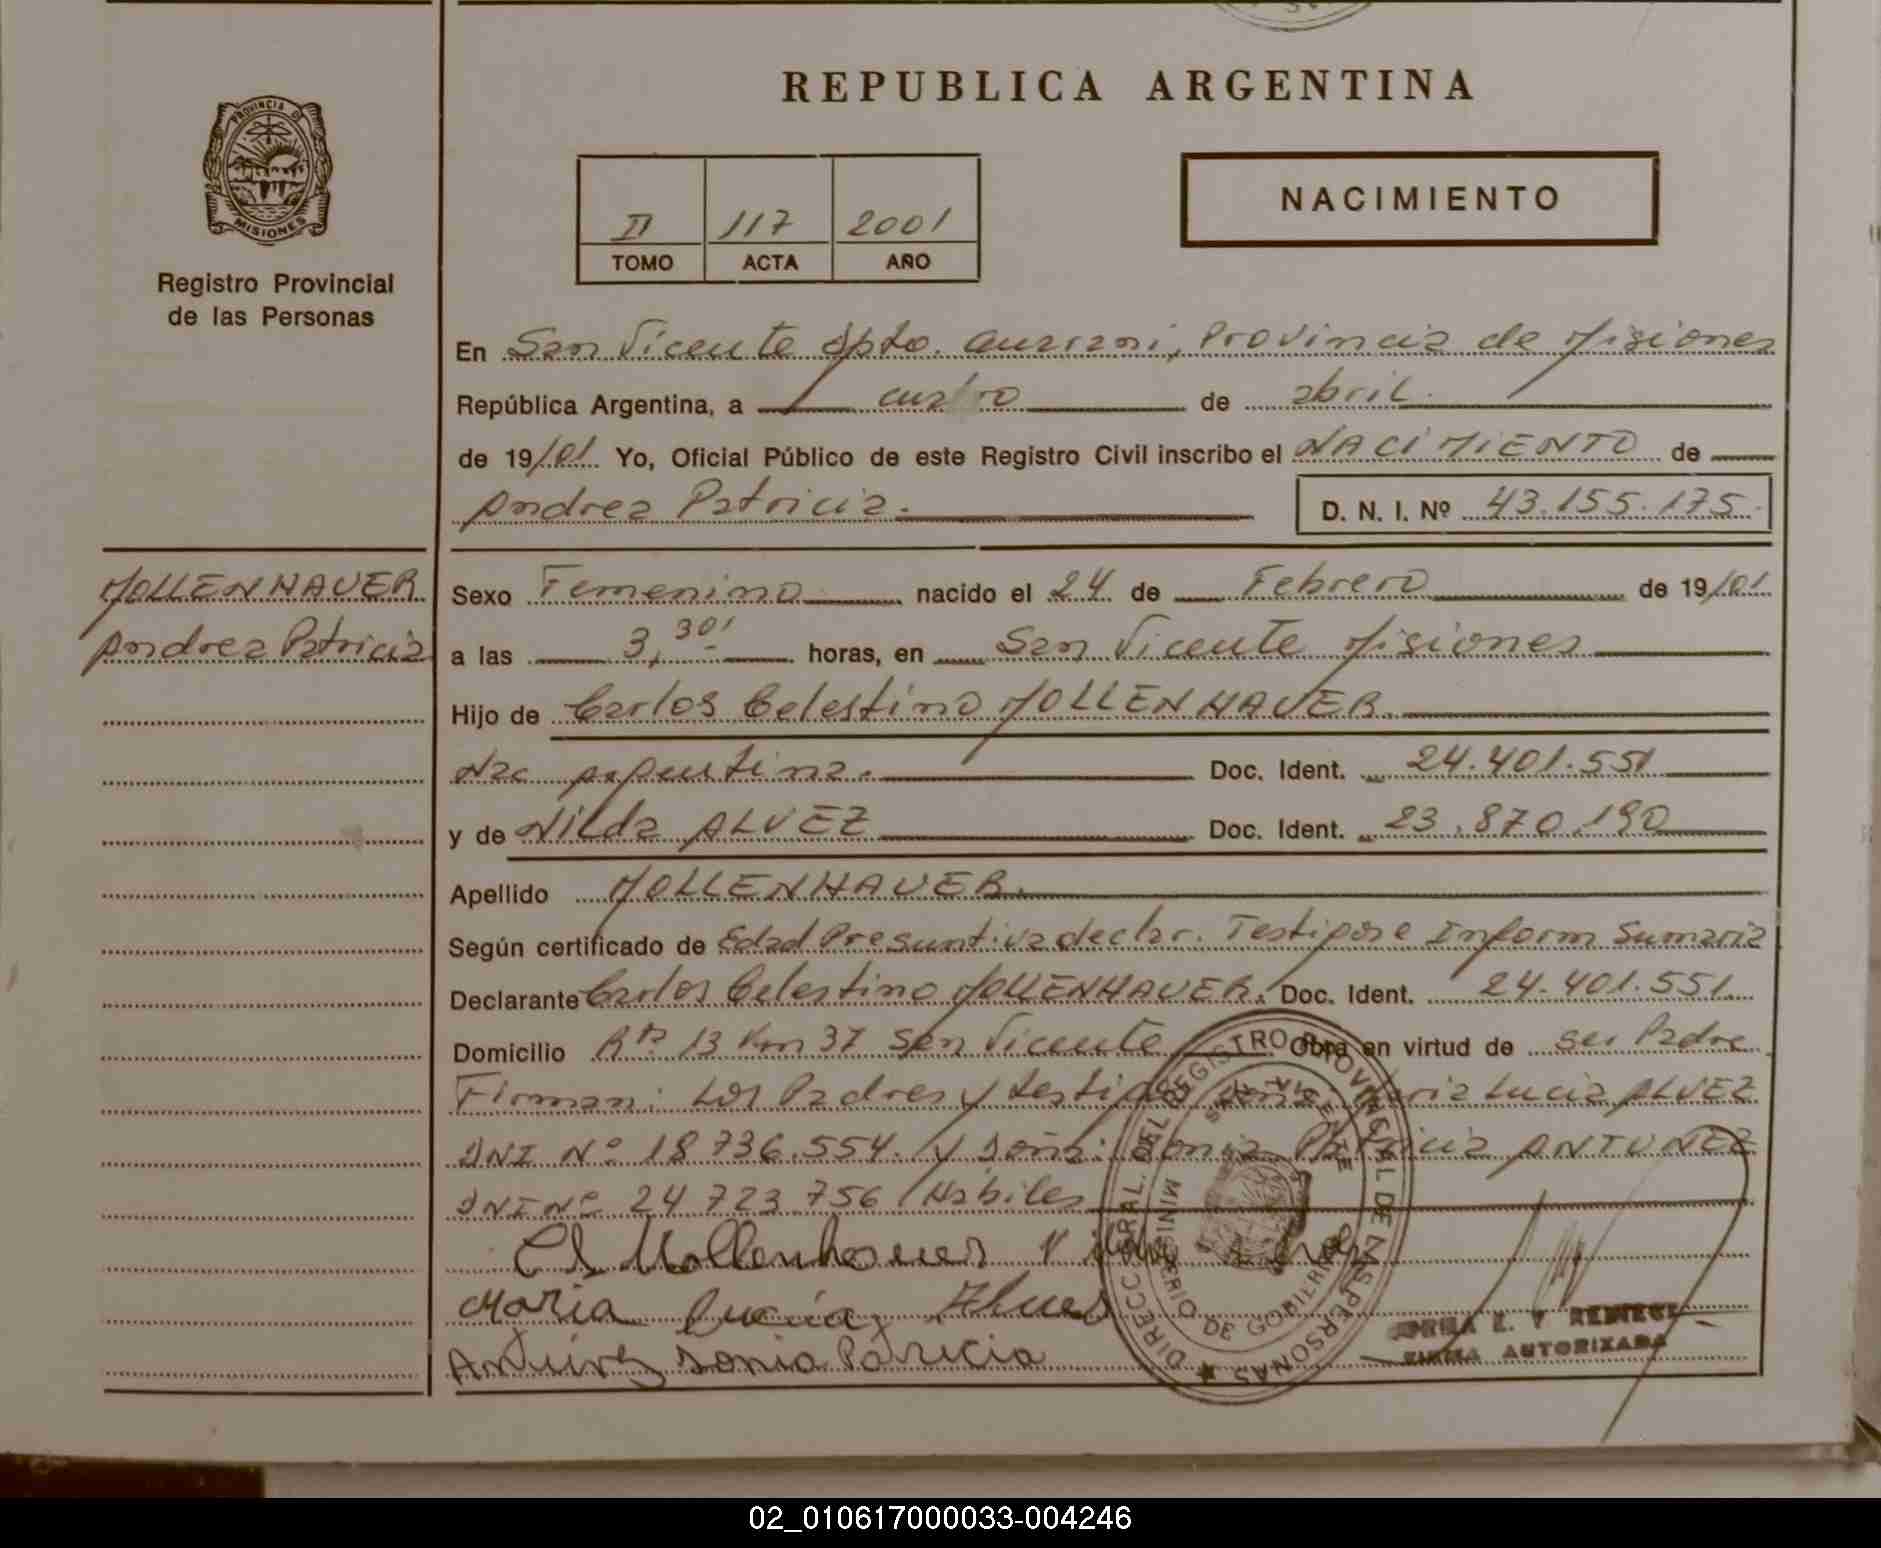 REPUBLICA ARGENTINA
PROVINCIA DE
MISIONES
Registro Provincial
de las Personas
II 117 2001
TOMO ACTA AÑO
NACIMIENTO
En San Vicente Dpto. Guarani, Provincia de Misiones
República Argentina, a cuatro de abril.
de 19/01. Yo, Oficial Público de este Registro Civil inscribo el NACIMIENTO de
Andrea Patricia. D. N. I. Nº 43.155.175.
MOLLENHAUER
Andrea Patricia
Sexo Femenino nacido el 24 de Febrero de 19/01.
a las 3,30' horas, en San Vicente Misiones
Hijo de Carlos Celestino MOLLENHAUER.
Nac argentina. Doc. Ident. 24.401.551
y de Nilda ALVEZ Doc. Ident. 23.870.190
Apellido MOLLENHAUER.
Según certificado de Edad Presuntiva declar. Testigos e Inform Sumaria
Declarante Carlos Celestino MOLLENHAUER. Doc. Ident. 24.401.551.
Domicilio Rta 13 Km 37 San Vicente Obra en virtud de ser Padre
Firman: Los Padres y testigos Maria Lucia ALVEZ
DNI Nº 18 736.554. y Doña: Sonia Patricia ANTUNEZ
DNI Nº 24 723 756 Habiles
Mollenhauer
Maria Lucia Alves
Antunez Sonia Patricia
DIRECC. GRAL. DEL REGISTRO PROVINCIAL DE LAS PERSONAS
MINISTERIO DE GOBIERNO
SAN VICENTE
FIRMA AUTORIZADA
02_010617000033-004246